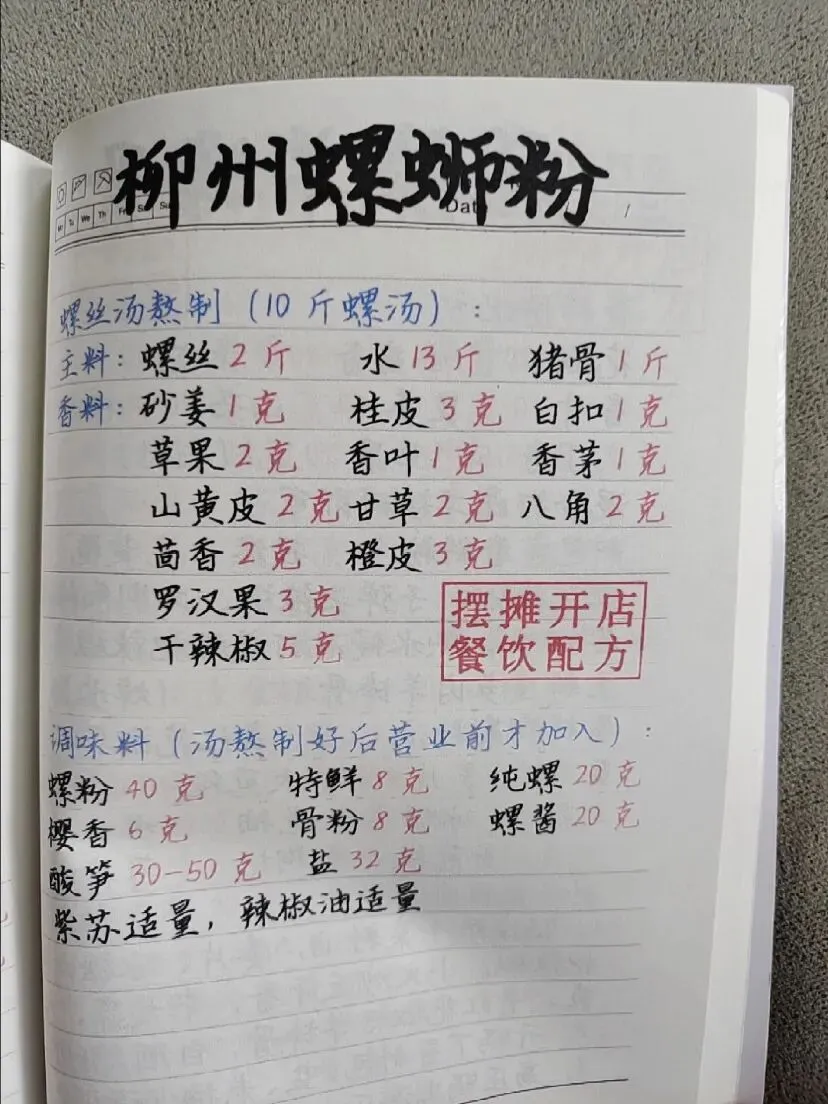 柳州螺蛳粉
Mo Tu We Th Fr Sa Su
Dat /
螺丝汤熬制(10斤螺汤):
主料: 螺丝2斤 水13斤 猪骨1斤
香料: 砂姜1克 桂皮3克 白扣1克
草果2克 香叶1克 香茅1克
山黄皮2克 甘草2克 八角2克
茴香2克 橙皮3克
罗汉果3克
干辣椒5克
摆摊开店
餐饮配方
调味料(汤熬制好后营业前才加入):
螺粉40克 特鲜8克 纯螺20克
樱香6克 骨粉8克 螺酱20克
酸笋30-50克 盐32克
紫苏适量,辣椒油适量